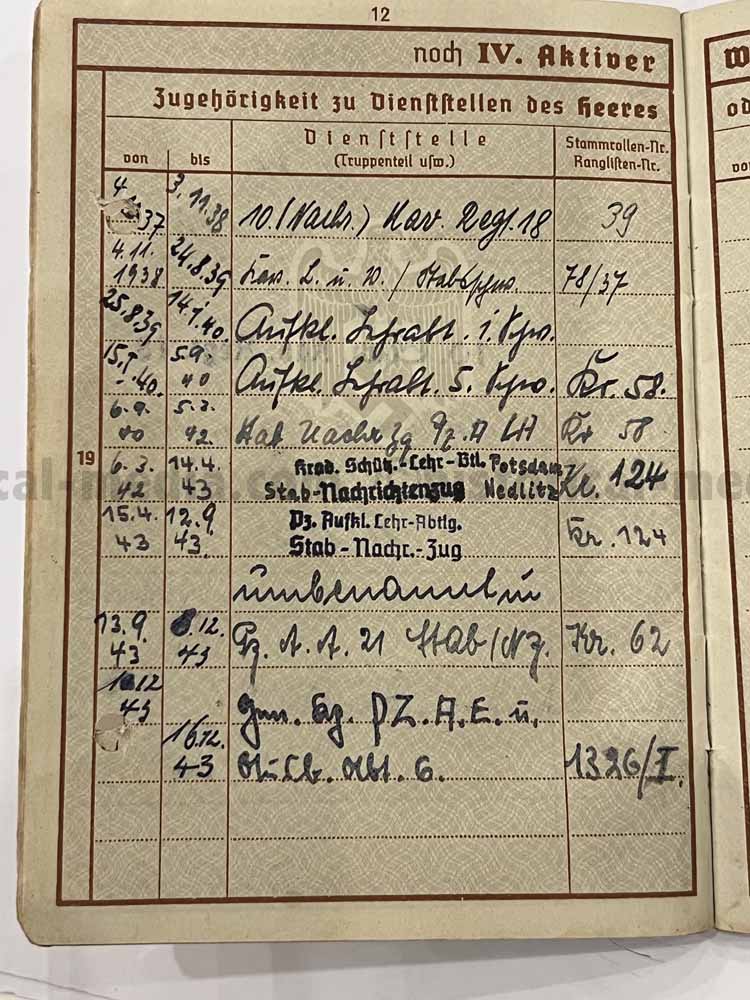 12
noch IV. Aktiver
Zugehörigkeit zu Dienststellen des Heeres
von bis Dienststelle (Truppenteil usw.) Stammrollen-Nr. Ranglisten-Nr.
4. 37 3.11.38 10. (Nachr.) Kav. Regt. 18 39
4.11. 1938 24.8.39 Kav. L. u. / Stabsschw. 78/37
25.8.39 14. .40. Aufkl. Lehrabt. 1. Schw.
15. .40. 5.9. 40 Aufkl. Lehrabt. 5. Schw. Kr. 58.
6.9. 40 5.3. 42. Stab Nachr Zg Pz. A LA Kr 58
19
6.3. 42 14.4. 43 Krad. Schütz.-Lehr-Btl. Potsdam Kr. 124
Stab-Nachrichtenzug Nedlitz
15.4. 43 12.9. 43. Pz. Aufkl. Lehr-Abtlg. Kr. 124
Stab-Nachr.-Zug
umbenannt in
13.9. 43 .12. 43 Pz. A. A. 21 Stab/NZ. Kr. 62
.12 43 Gen. Kp. PZ. A. E. u.
16.12. 43 Abt. 6. 1326/I.
W
od
vo